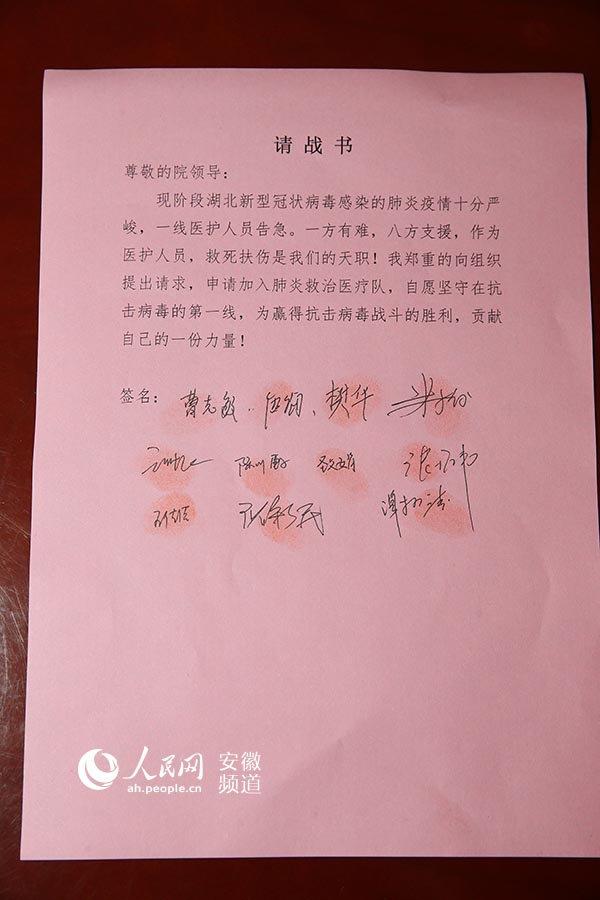 请战书
尊敬的院领导：
现阶段湖北新型冠状病毒感染的肺炎疫情十分严
峻，一线医护人员告急。一方有难，八方支援，作为
医护人员，救死扶伤是我们的天职！我郑重的向组织
提出请求，申请加入肺炎救治医疗队，自愿坚守在抗
击病毒的第一线，为赢得抗击病毒战斗的胜利，贡献
自己的一份力量！
签名：曹志敏 樊华
人民网 安徽频道
ah.people.cn